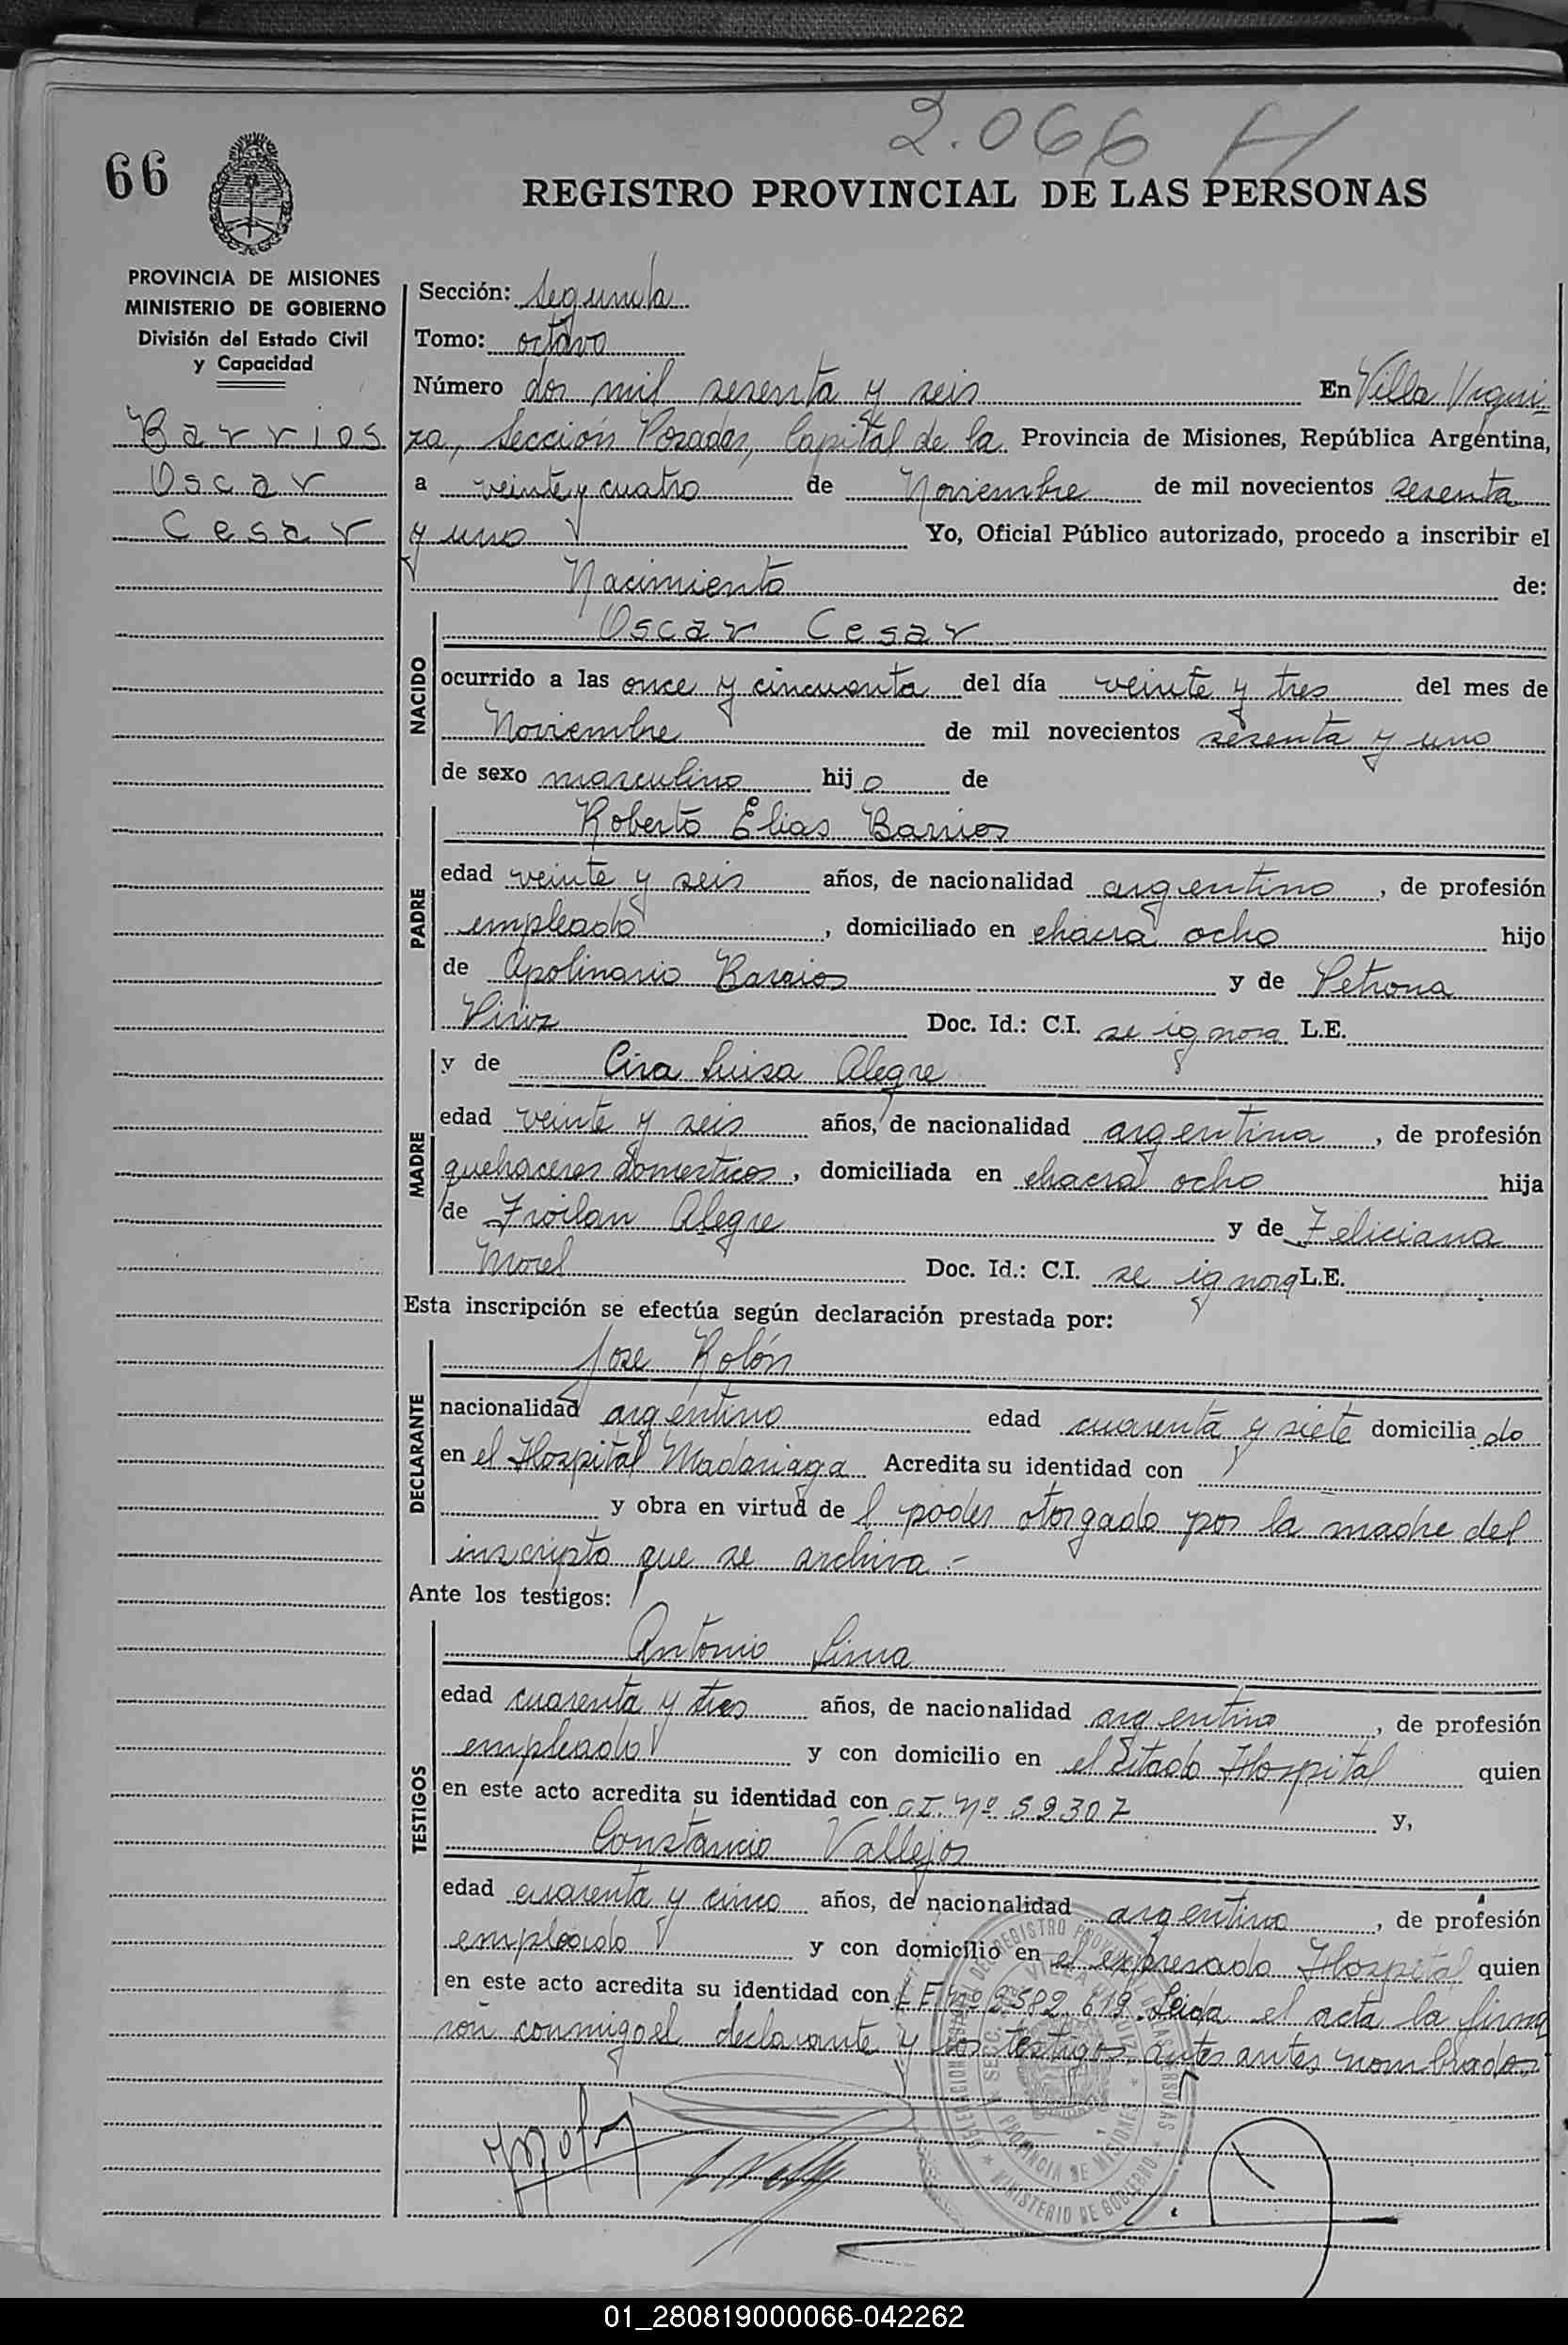 2.066
66
REGISTRO PROVINCIAL DE LAS PERSONAS
PROVINCIA DE MISIONES
MINISTERIO DE GOBIERNO
División del Estado Civil
y Capacidad
Barrios
Oscar
Cesar
Sección: Segunda
Tomo: octavo
Número dos mil sesenta y seis En Villa Urqui-
za, Sección Posadas, Capital de la Provincia de Misiones, República Argentina,
a veinte y cuatro de Noviembre de mil novecientos sesenta
y uno Yo, Oficial Público autorizado, procedo a inscribir el
Nacimiento de:
NACIDO
Oscar Cesar
ocurrido a las once y cincuenta del día veinte y tres del mes de
Noviembre de mil novecientos sesenta y uno
de sexo masculino hijo de
PADRE
Roberto Elias Barrios
edad veinte y seis años, de nacionalidad argentino, de profesión
empleado, domiciliado en chacra ocho hijo
de Apolinario Barrios y de Petrona
Doc. Id.: C.I. se ignora L.E.
MADRE
y de Cira Luisa Alegre
edad veinte y seis años, de nacionalidad argentina, de profesión
quehaceres domesticos, domiciliada en chacra ocho hija
de Froilan Alegre y de Feliciana
Morel Doc. Id.: C.I. se ignora L.E.
Esta inscripción se efectúa según declaración prestada por:
DECLARANTE
Jose Rolón
nacionalidad argentino edad cuarenta y siete domiciliado
en el Hospital Madariaga Acredita su identidad con
y obra en virtud del poder otorgado por la madre del
inscripto que se archiva.-
Ante los testigos:
TESTIGOS
Antonio Lima
edad cuarenta y tres años, de nacionalidad argentino, de profesión
empleado y con domicilio en el citado Hospital quien
en este acto acredita su identidad con C.I. Nº 59307 y,
Constancio Vallejos
edad cuarenta y cinco años, de nacionalidad argentino, de profesión
empleado y con domicilio en el expresado Hospital quien
en este acto acredita su identidad con L E Nº 619. Leida el acta la firma
ron conmigo el declarante y los testigos antes nombrados
REGISTRO PROVINCIAL DE LAS PERSONAS
PROVINCIA DE MISIONES
MINISTERIO DE GOBIERNO
01_280819000066-042262